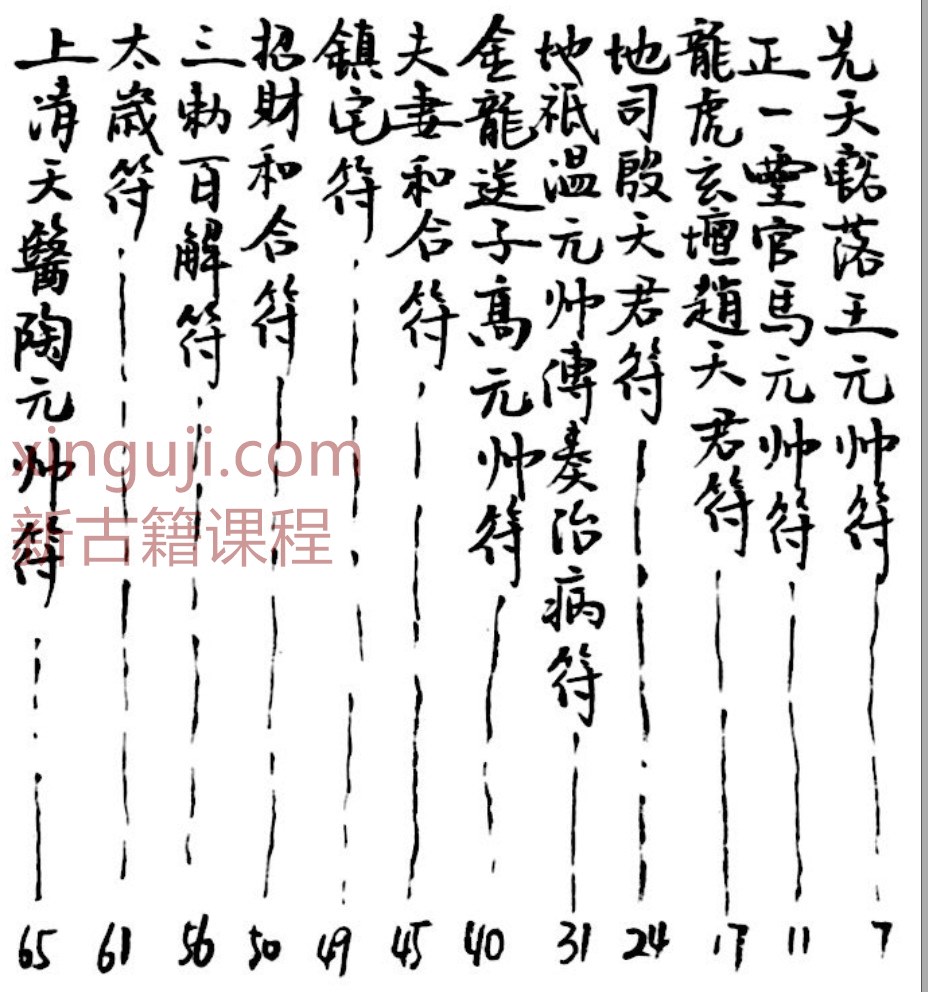 先天豁落王元帅符 7
正一靈官馬元帅符 11
龍虎玄壇趙天君符 17
地司殷天君符 24
地祇温元帅傳奏治病符 31
金龍送子高元帅符 40
夫妻和合符 45
鎮宅符 49
招財和合符 50
三勅百解符 56
太歲符 61
上清天醫陶元帅符 65
xinguji.com
新古籍课程